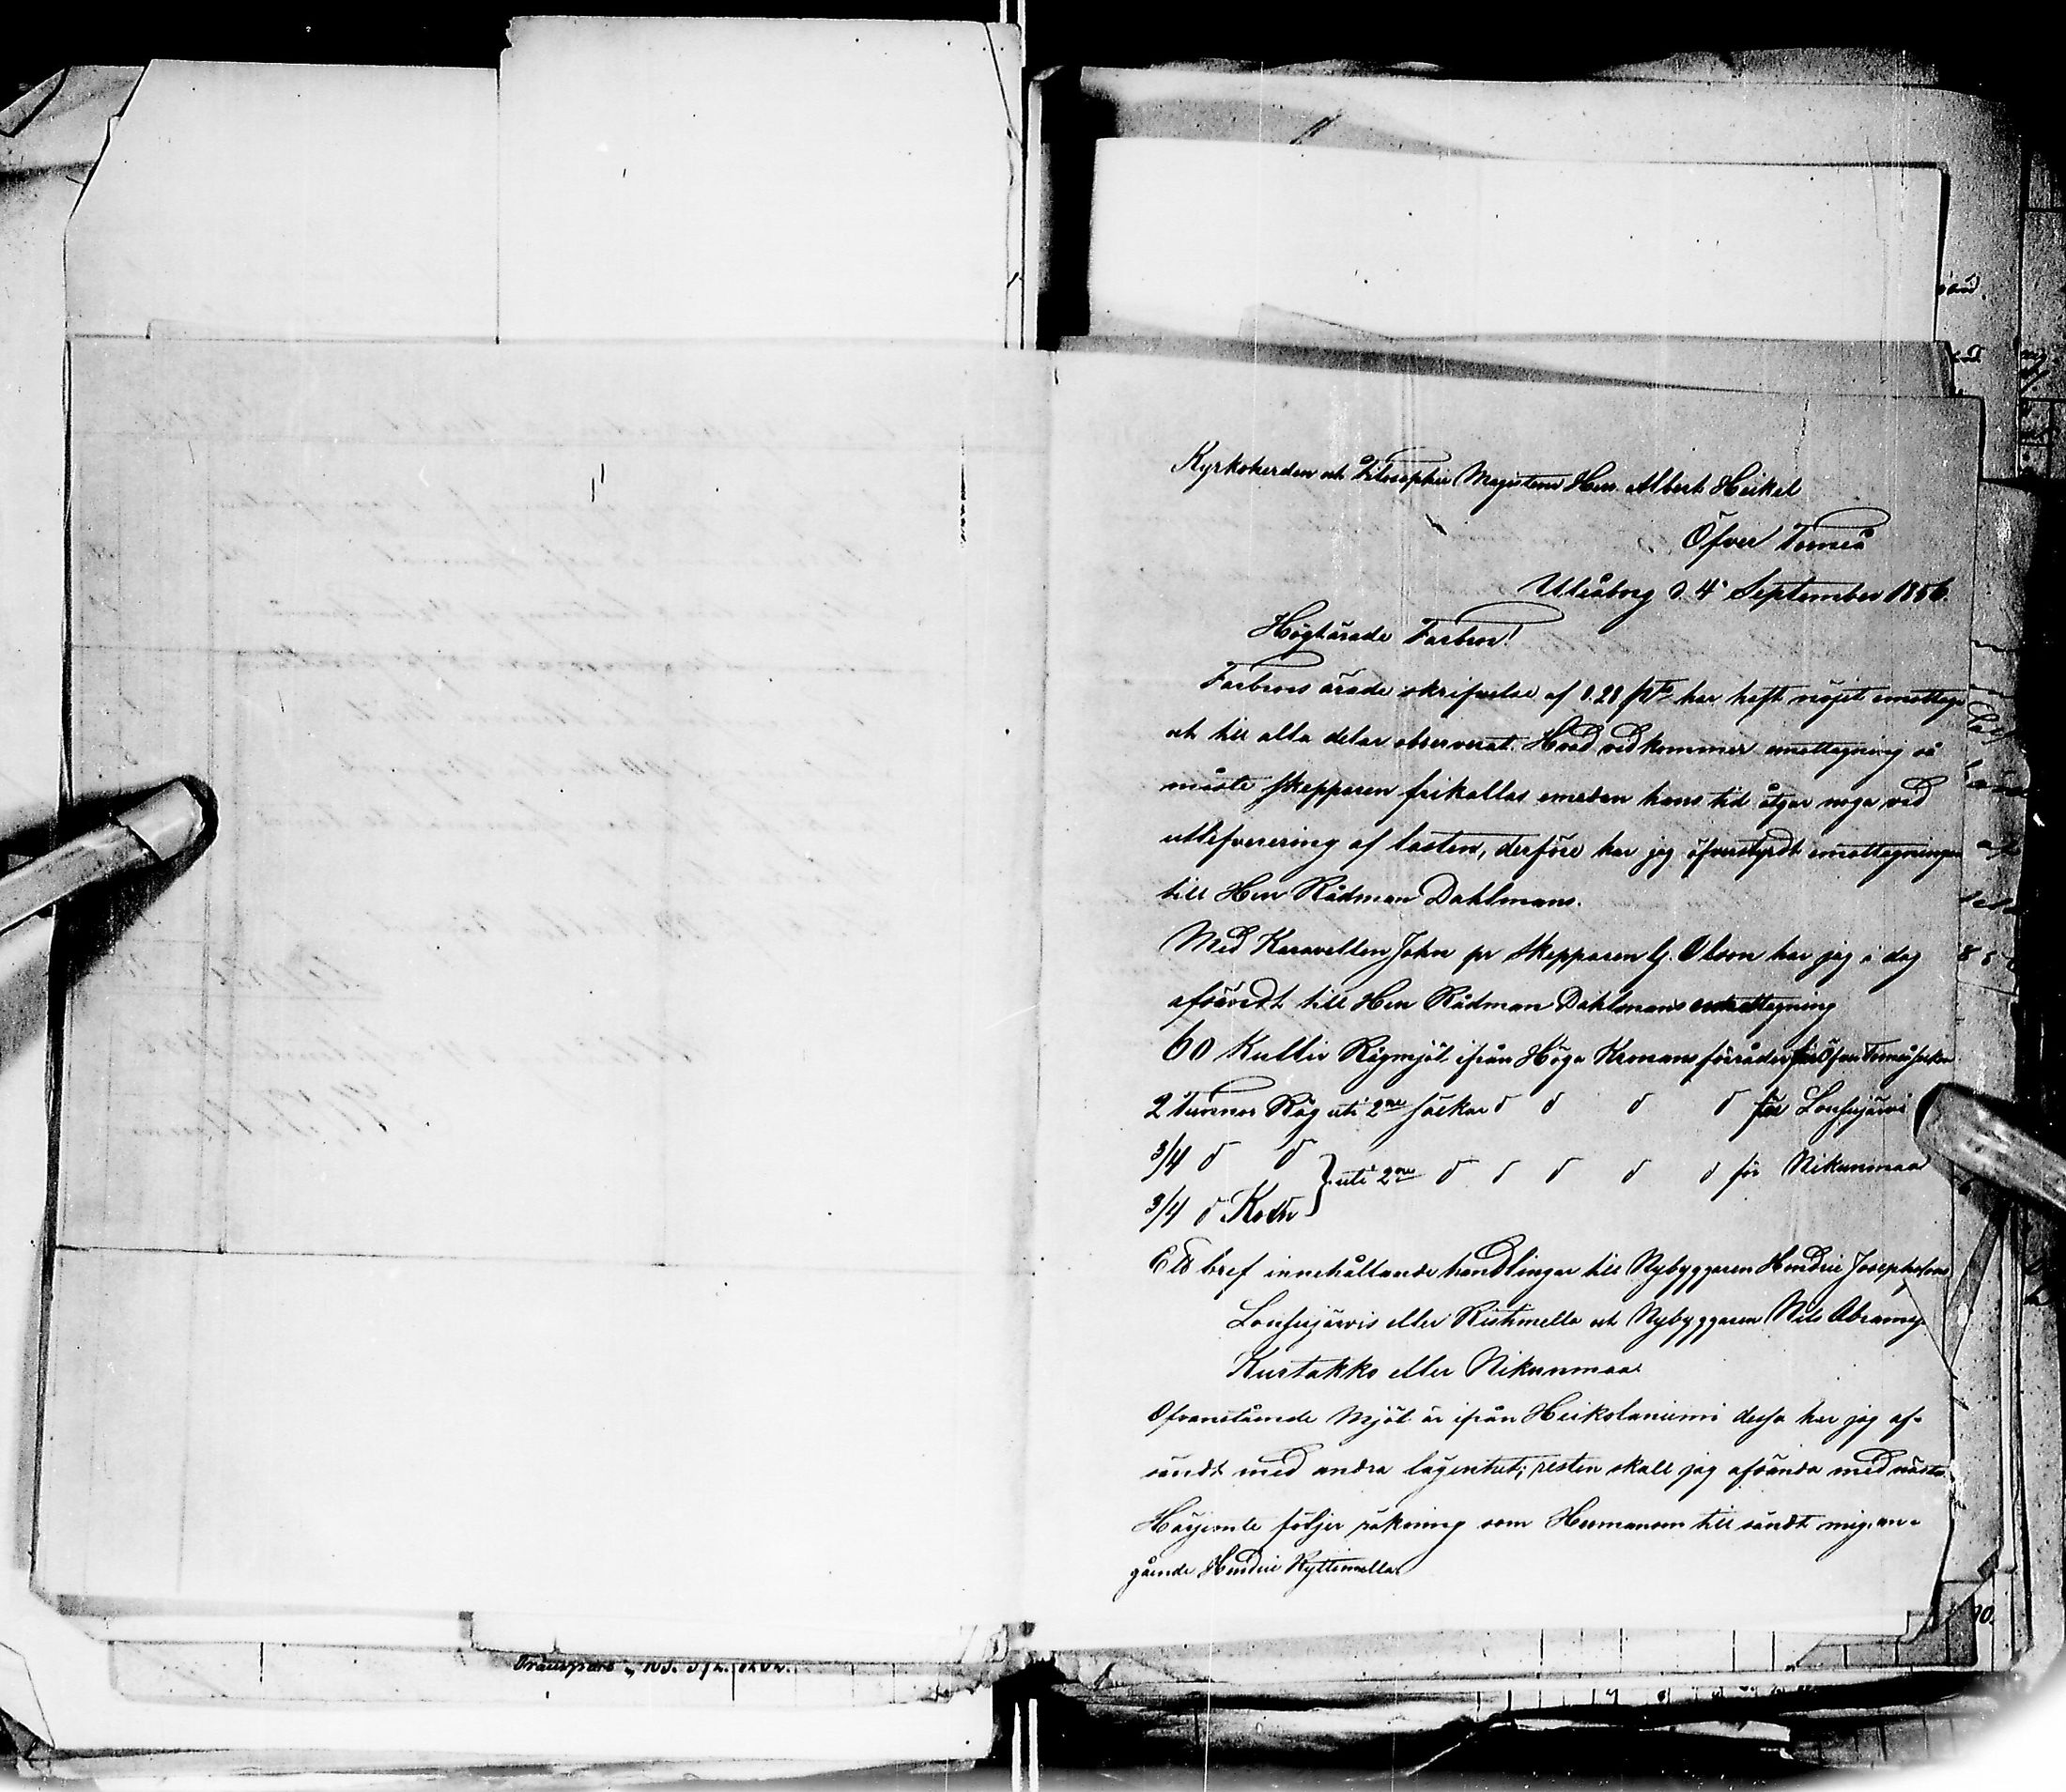 Kyrkoherden och Filosophie Magistern Herr Albert Heikel
Öfver Torneå
Uleåborg d. 4 September 1856.
Högtärade Farbror!
Farbrors ärade skrifvelse af d. 28 har haft nöjet emottaga
och till alla delar observerat. Hvad vidkommer emottagning så
måste skepparen frikallas emedan hans tid åtgår noga vid
utlefverering af lasten, derföre har jag öfverstyrdt emottagningen
till Herr Rådman Dahlmans.
Med Karavellen John pr skepparen G. Olson har jag i dag
afsändt till Herr Rådman Dahlmans emottagning
60 Kullir Rågmjöl ifrån Höga Kronans förråder för Öfver Torneå socken
2 Tunnor Råg uti 2ne säckar d d d d för Lohijärvi
3/4 d d
uti 2ne d d d d d för Nikunmaa
3/4 d Korn
Ett bref innehållande handlingar till Nybyggaren Hendric Josephsons
Lohijärvis eller Ristimella och Nybyggaren Nils Abramss.
Kurtakko eller Nikunmaa
Ofvanstående Mjöl är ifrån Heikolaniemi dessa har jag af-
sändt med andra lägenhet; resten skall jag afsända med nästa.
Härjemte följer räkning som Hermanson till sändt mig, an-
gående Hendric Kyttimella